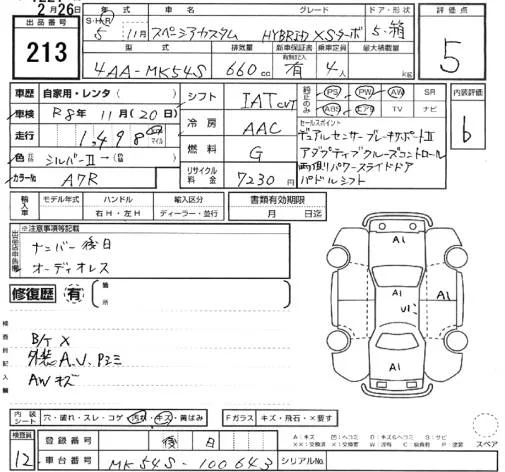 2月26日
出品番号
213
年式 車名 グレード ドア・形状
S・H・R 5年 11月 スペーシアカスタム HYBRID XSターボ 5・箱
型式 排気量 新車保証書 有無記入 乗車定員 最大積載量
4AA-MK54S 660cc 有 4人 kg
評価点
5
車歴 自家用・レンタ( )
車検 R8年11月(20日)
走行 1,498 km マイル
色 シルバーII→(
カラーNo A7R
シフト IAT CVT
冷房 AAC
燃料 G
リサイクル料金 7230円
純正のみ PS PW AW SR
ABS エアB TV ナビ
セールスポイント
デュアルセンサーブレーキサポートII
アダプティブクルーズコントロール
両側パワースライドドア
パドルシフト
内装評価
6
輸入車 モデル年式 ハンドル 輸入区分 書類有効期限
右H・左H ディーラー・並行 月 日迄
出品店申告欄
※注意事項等記載
ナンバー後日
オーディオレス
修復歴 有 ( 箇所
検査員記入欄
B/ケ X
外装A.U.Pエミ
AWキズ
A1
A1
A1
U1
A1
内装シート 穴・破れ・スレ・コゲ・汚れ・キズ・黄ばみ Fガラス キズ・飛石・X要す
検査員 12
登録番号 後日
車台番号 MK54S-100643 シリアルNo.
A:キズ U:凹ヘコミ S:サビ
XX:交換済 X:交換要 W:波有 C:腐食有 P:塗装
スペア